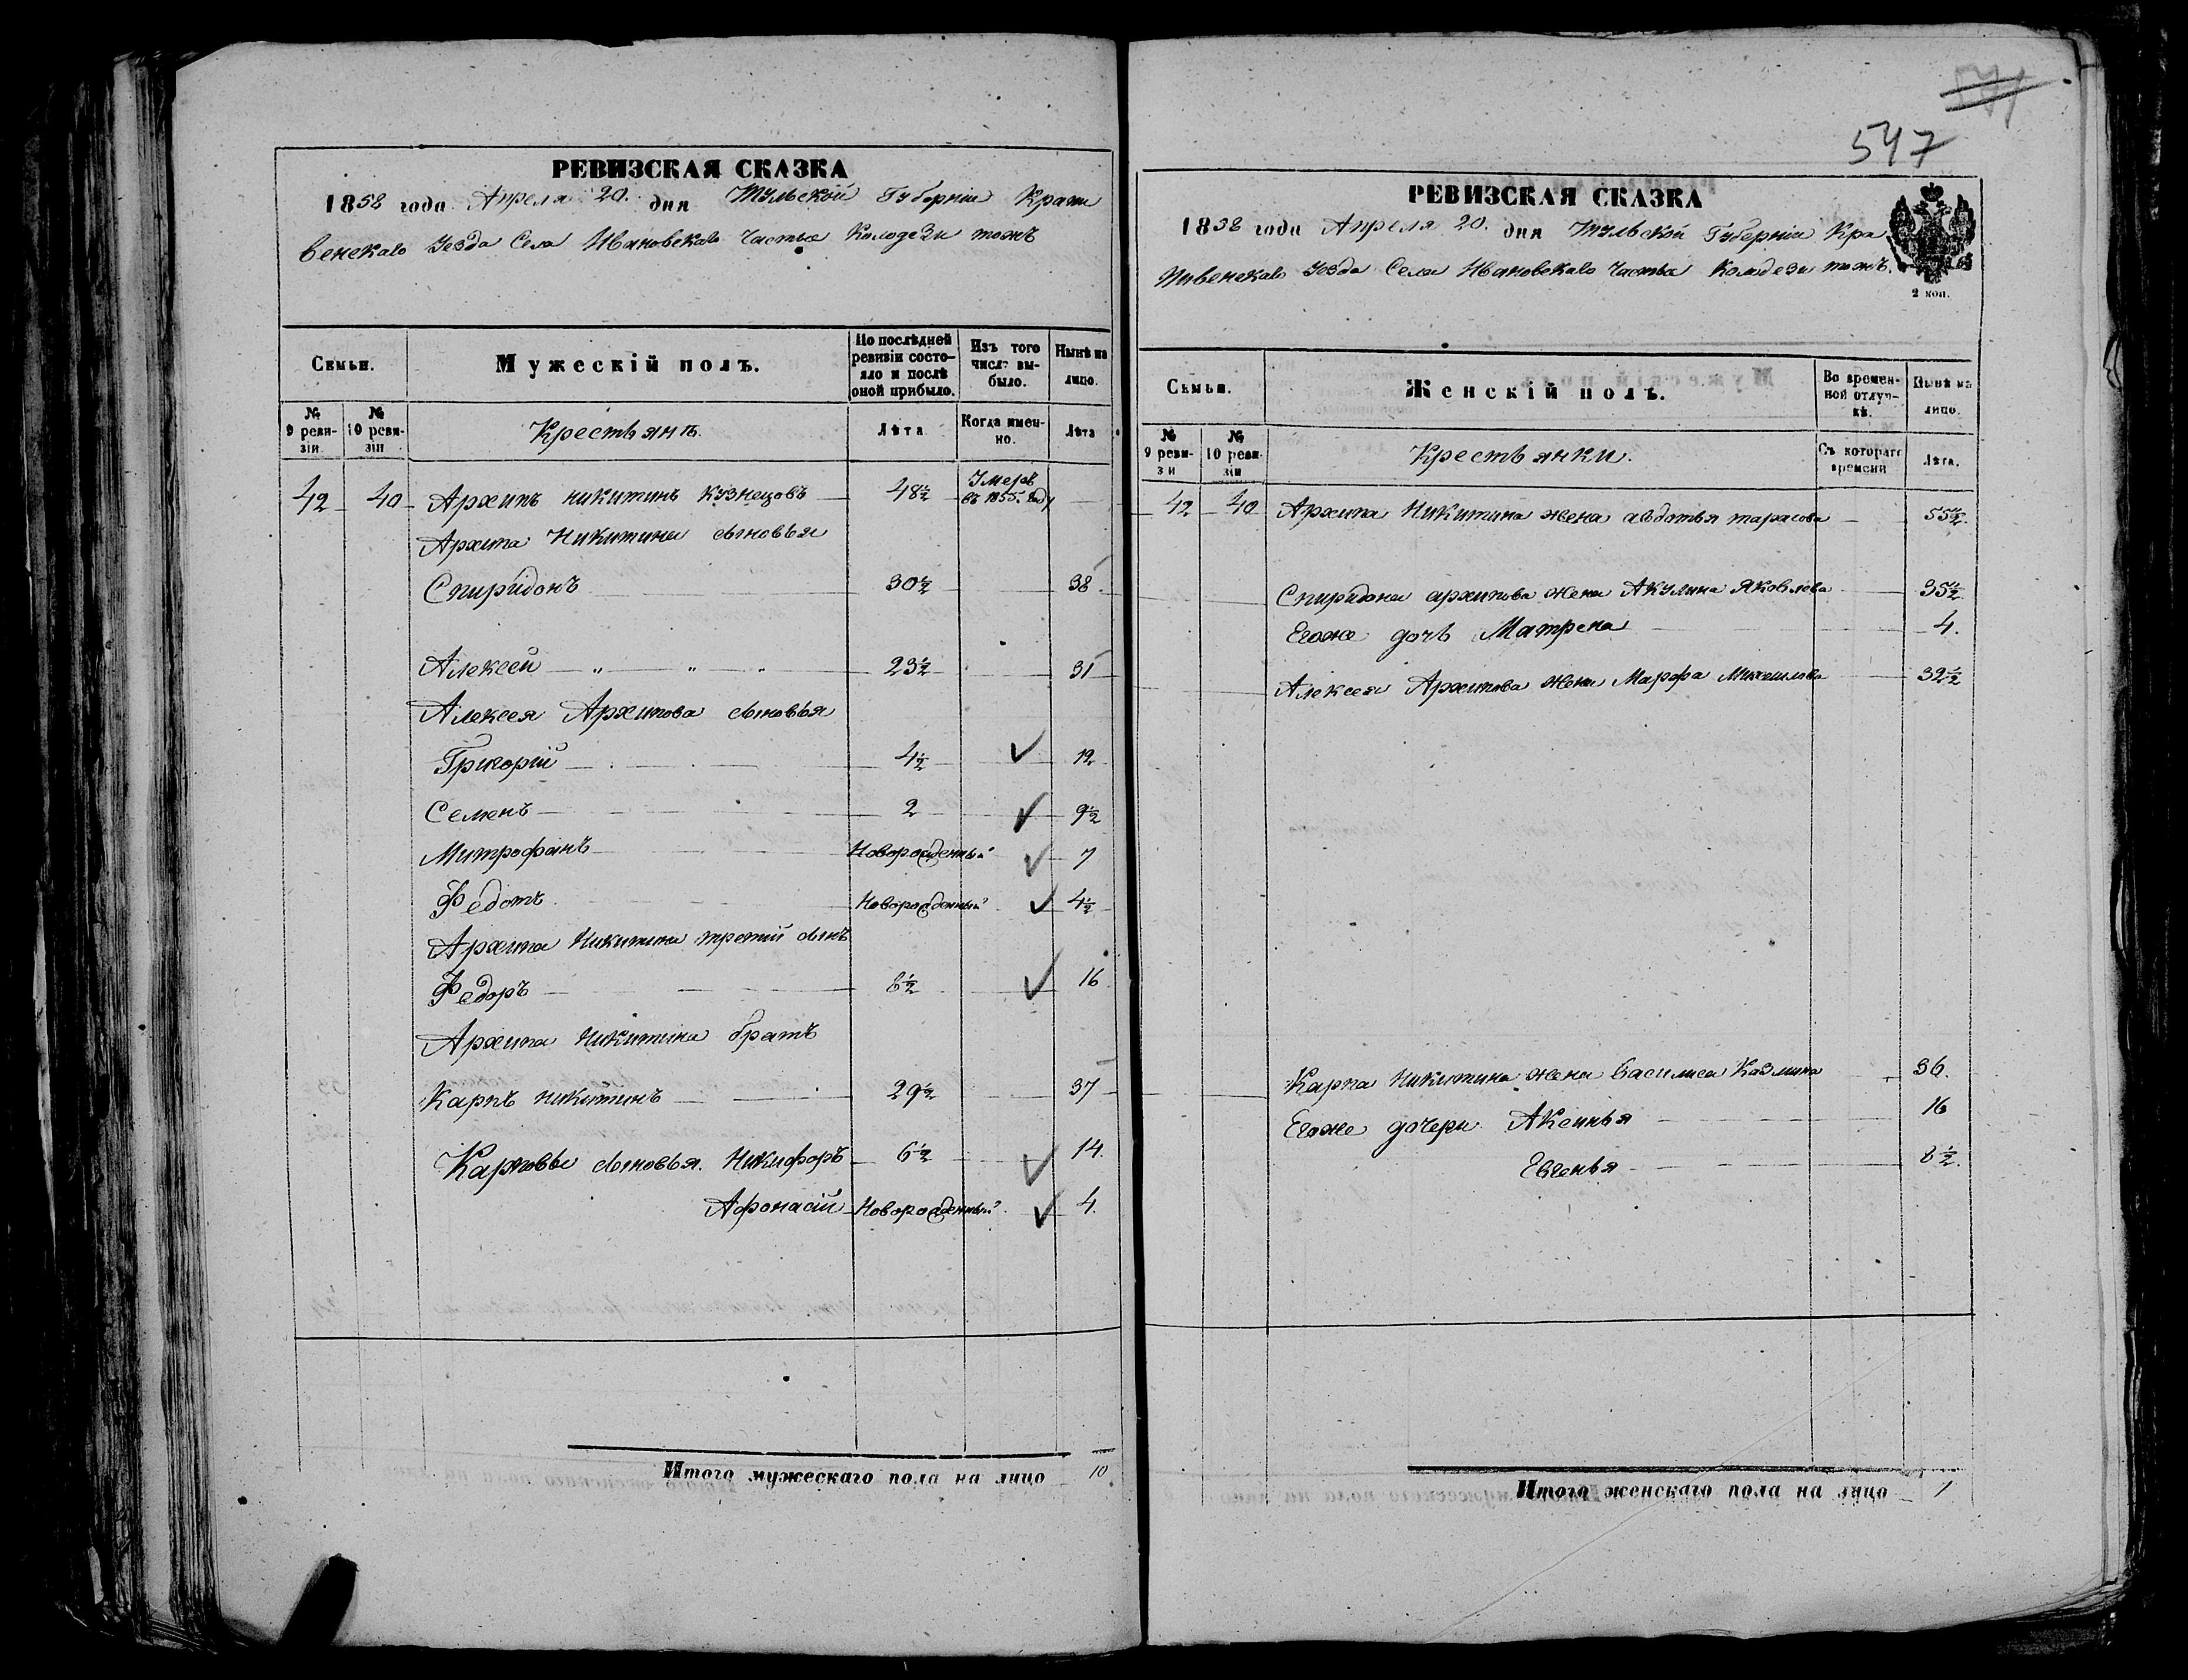 РЕВИЗСКАЯ СКАЗКА
1858 года Апреля 20. дня Тульской Губернiи Крапи
венскаго Уезда Села Ивановскаго Частые Колодези тожъ
Семьи.
Мужескiй полъ.
По послѣдней ревизiи состояло и послѣ оной прибыло.
Изъ того числа выбыло.
Нынѣ на лицо.
№ 9 ревизiи.
№ 10 ревизiи
Крестьянъ.
Лѣта
Когда именно.
Лѣта
42 40 Архипъ никитинъ кузнецовъ 48½ Умеръ въ 1855. году
Архипа Никитина сыновья
Спиридонъ 30½ 38
Алексей „ „ „ 23½ 31
Алексея Архипова сыновья
Григорiй 4½ 12
Семенъ 2 9½
Митрофанъ Новорожденный 7
Федотъ Новорожденный 4½
Архипа Никитина третiй сынъ
Федоръ 8½ 16
Архипа Никитина братъ
Карпъ никитинъ 29½ 37
Карповы сыновья. Никифоръ 6½ 14
Афонасiй Новорожденный 4.
Итого мужескаго пола на лицо 10
547
РЕВИЗСКАЯ СКАЗКА
1858 года Апреля 20. дня Тульской Губернiи Кра
пивенскаго Уезда Села Ивановскаго Частыа Колодези тожъ.
2 коп.
Семьи.
Женскiй полъ.
Во временной отлучкѣ.
Нынѣ на лицо.
№ 9 ревизи
№ 10 ревизiи
Крестьянки.
Съ котораго времени
Лѣта.
42 40 Архипа Никитина жена авдотья тарасова 55½
Спиридона архипова жена Акулина Яковлева 35½
Егоже дочь Матрена 4.
Алексея Архипова жена Марфа Михаилова 32½
Карпа Никитина жена Василиса Казмина 36.
Егоже дочери Аксинья 16
Евгенья 8½.
Итого женскаго пола на лицо